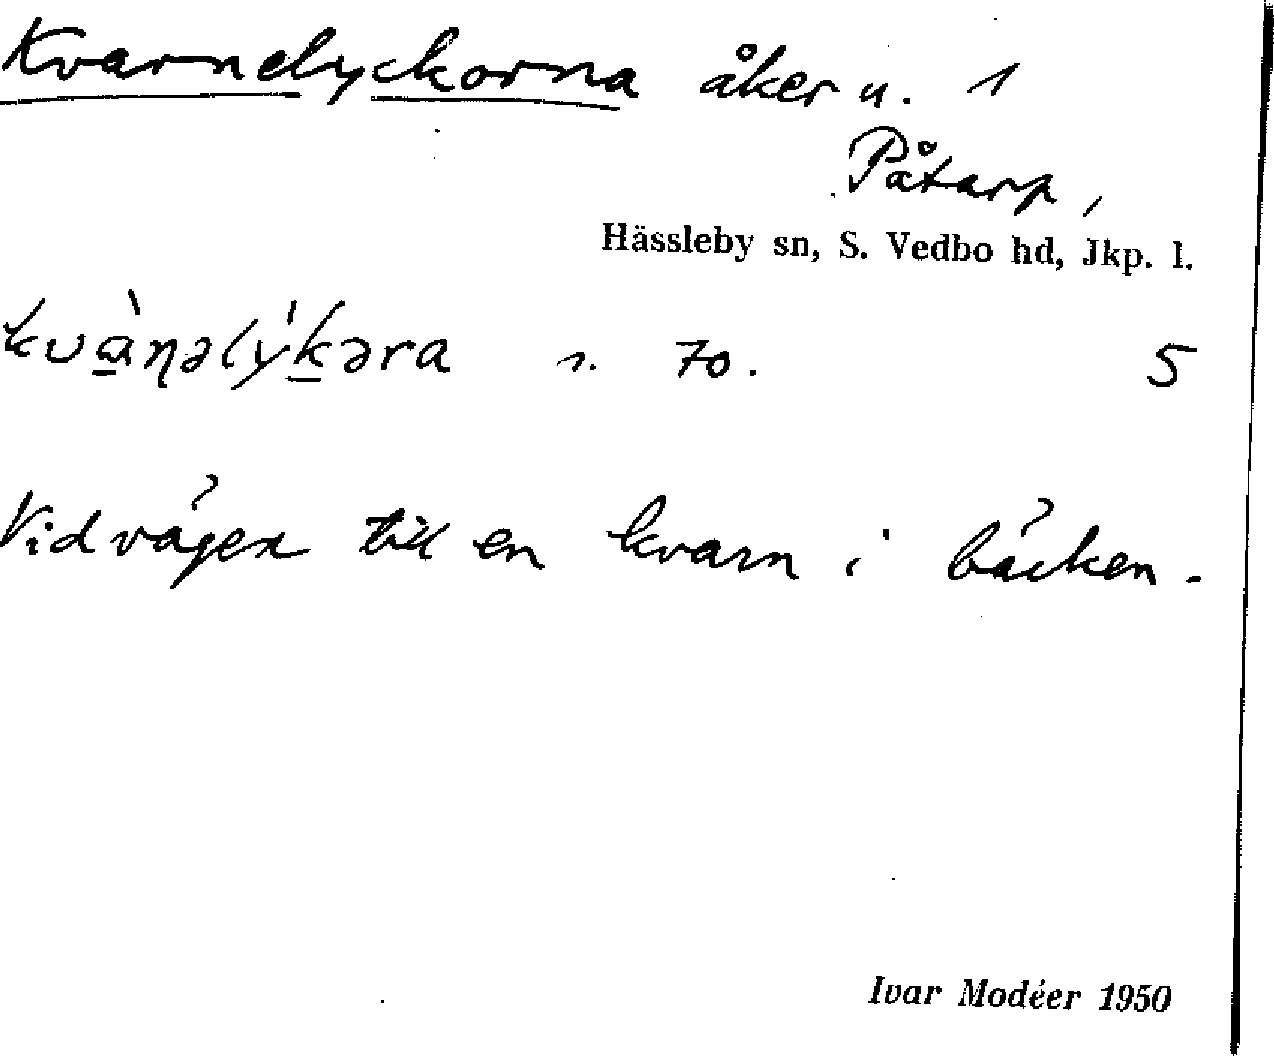 Kvarnelyckorna åker u. 1
Påtarp,
Hässleby sn, S. Vedbo hd, Jkp. l.
kvàṇəlýkəra n. 70. 5
Vid vägen till en kvarn i bäcken.
Ivar Modéer 1950